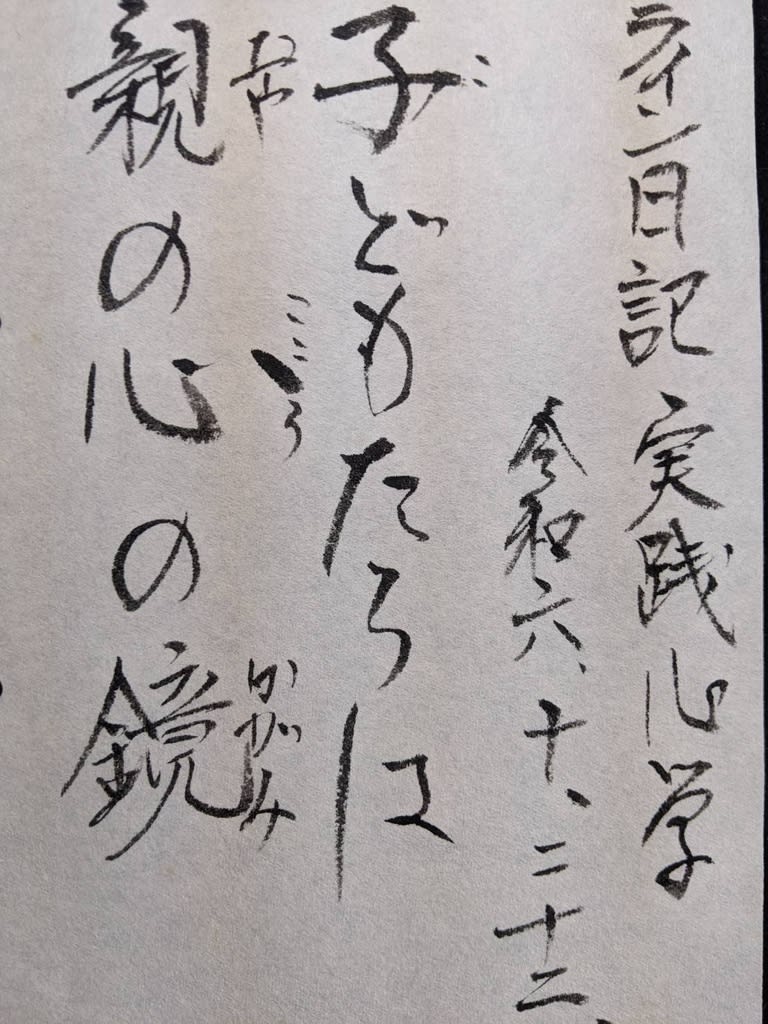 ライン日記 実践心学
令和六、十、二十二、
子どもたちは
こ
親の心の鏡
おや
こころ
かがみ